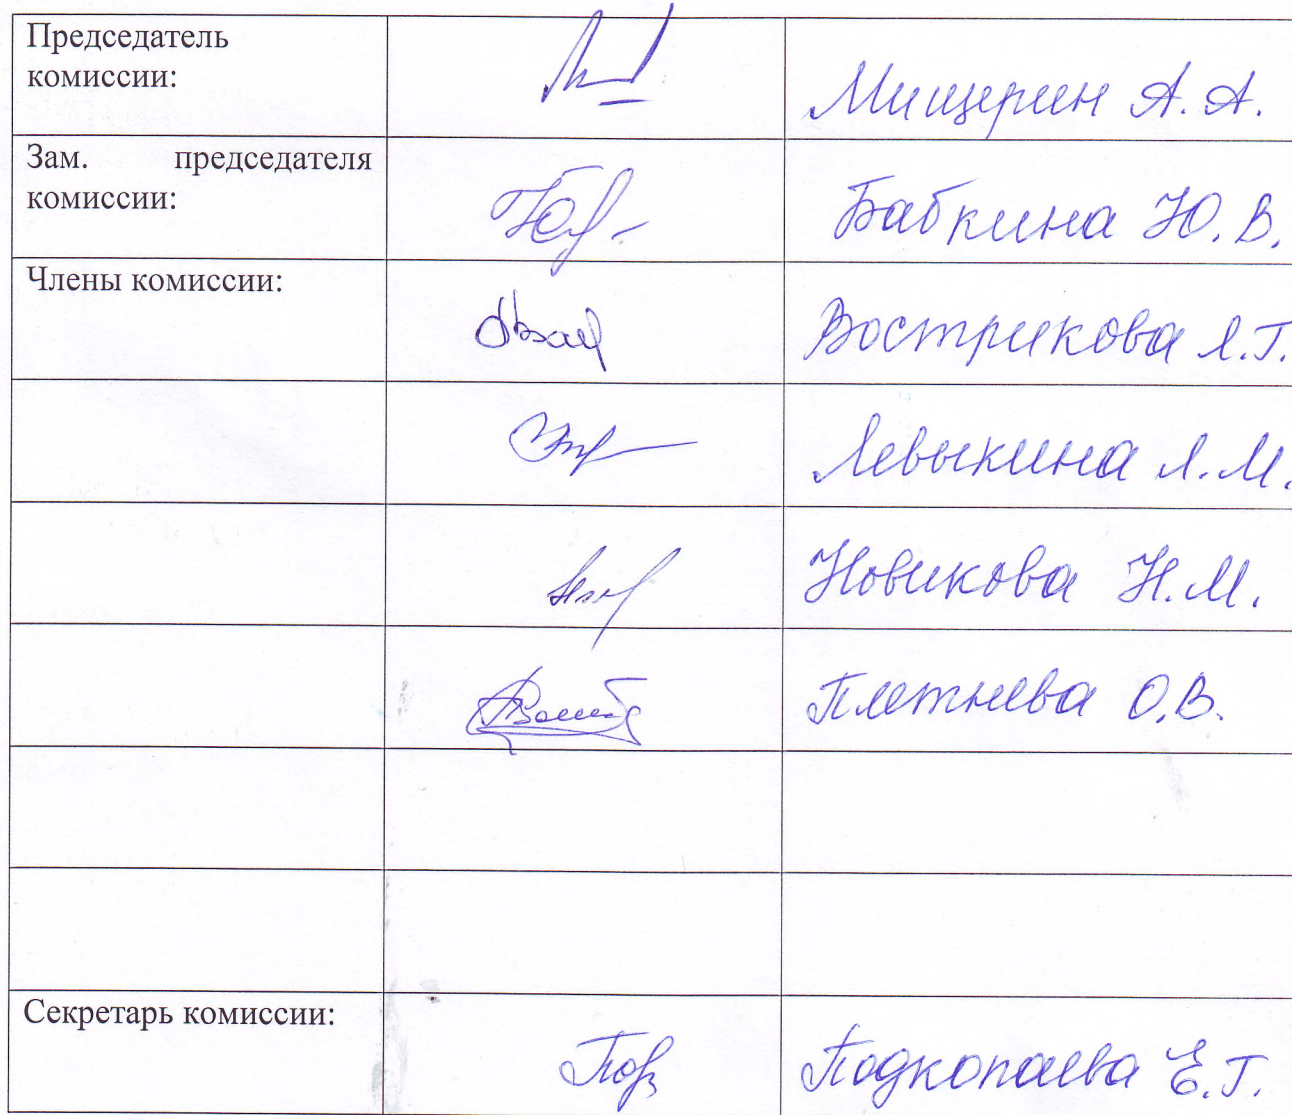 Председатель
комиссии:
Мищерин А. А.
Зам. председателя
комиссии:
Бабкина Ю. В.
Члены комиссии:
Вострикова Л.Г.
Левыкина Л.М.
Новикова Н.М.
Плетнева О.В.
Секретарь комиссии:
Подкопаева Е.Г.